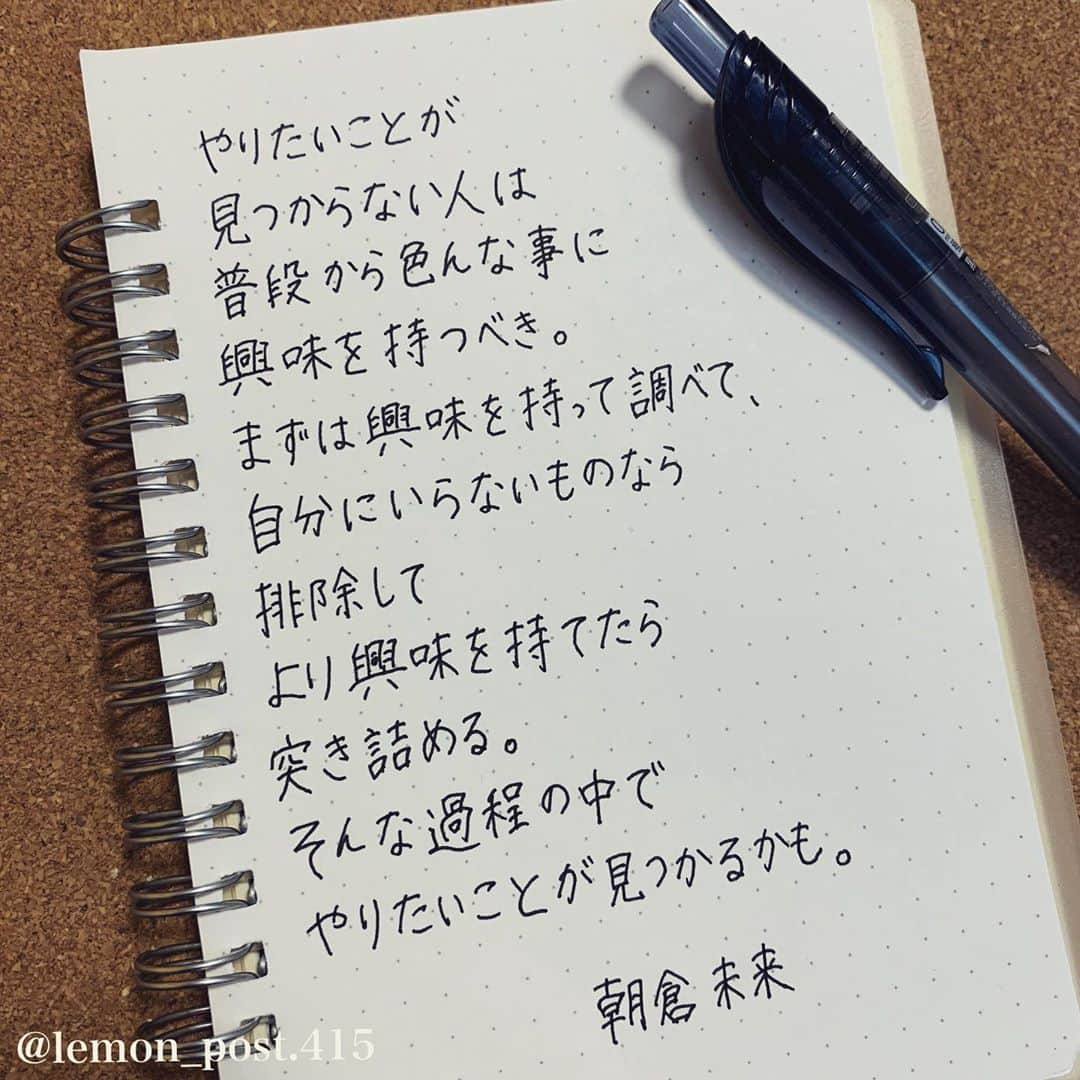 やりたいことが
見つからない人は
普段から色んな事に
興味を持つべき。
まずは興味を持って調べて、
自分にいらないものなら
排除して
より興味を持てたら
突き詰める。
そんな過程の中で
やりたいことが見つかるかも。
朝倉未来
@lemon_post.415